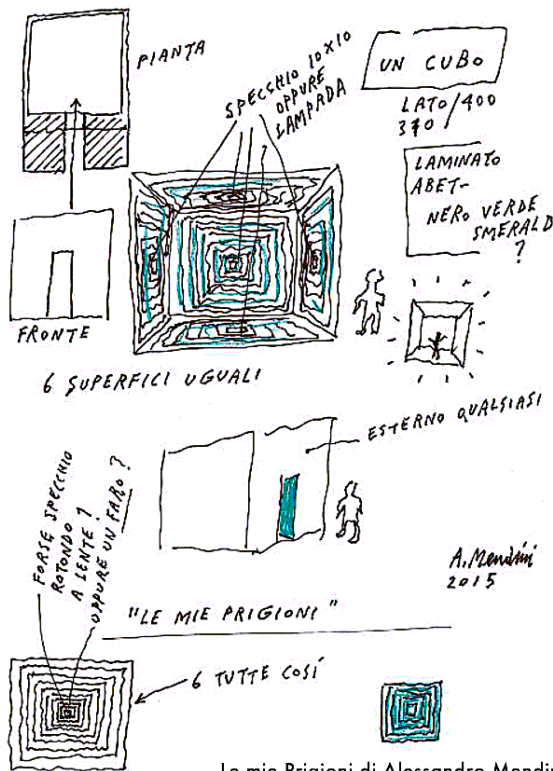 PIANTA
SPECCHIO 10x10
OPPURE
LAMPADA
UN CUBO
LATO/400
370
LAMINATO
ABET-
NERO VERDE
SMERALD
?
FRONTE
6 SUPERFICI UGUALI
ESTERNO QUALSIASI
FORSE SPECCHIO
ROTONDO
A LENTE?
OPPURE UN FARO?
A. Mendini
2015
"LE MIE PRIGIONI"
6 TUTTE COSÍ
Le mie Prigioni di Alessandro Mendin